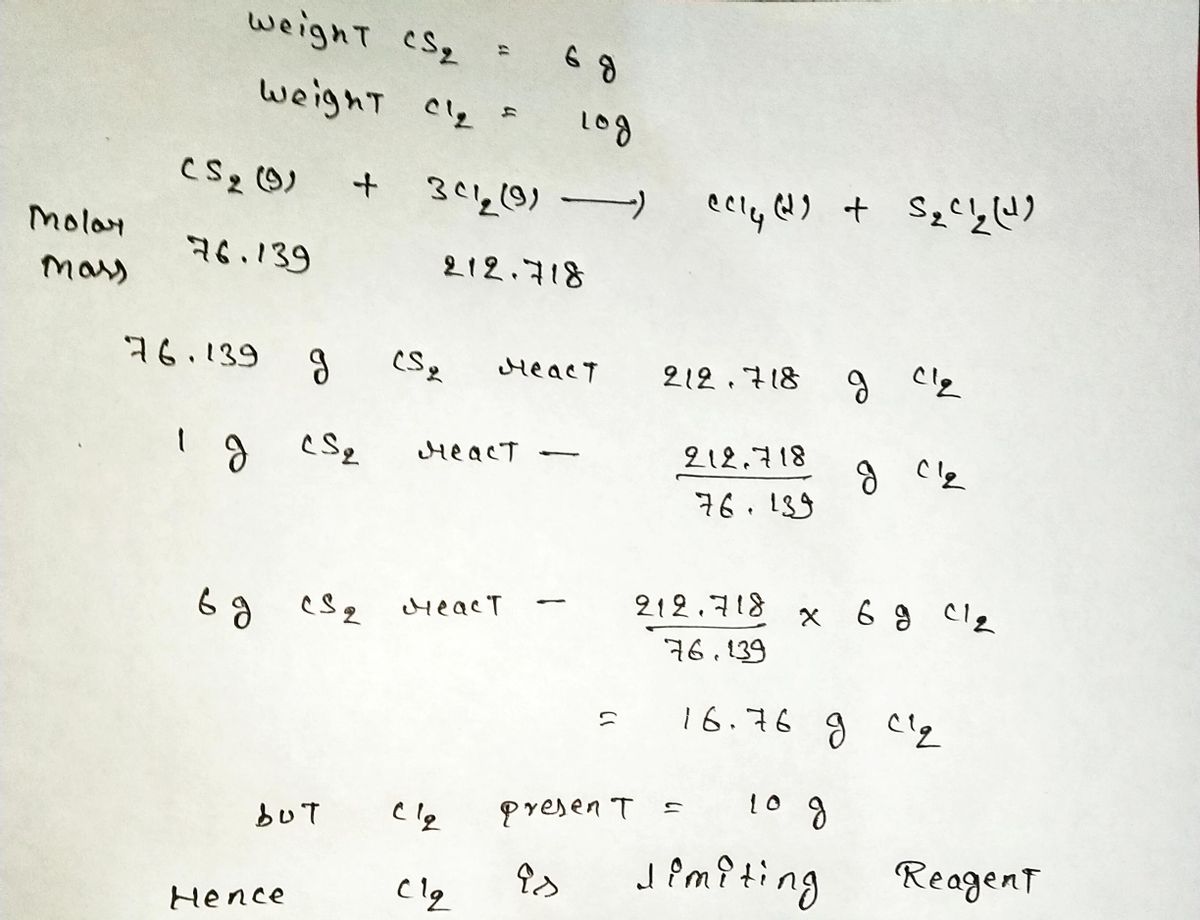 weight CS₂ = 6 g
weight Cl₂ = 10g
CS₂ (g) + 3Cl₂ (g) ⟶ CCl₄ (l) + S₂Cl₂ (l)
Molar mass 76.139 212.718
76.139 g CS₂ react 212.718 g Cl₂
1 g CS₂ react — 212.718/76.139 g Cl₂
6 g CS₂ react — 212.718/76.139 x 6 g Cl₂
= 16.76 g Cl₂
but Cl₂ present = 10 g
Hence Cl₂ is limiting Reagent